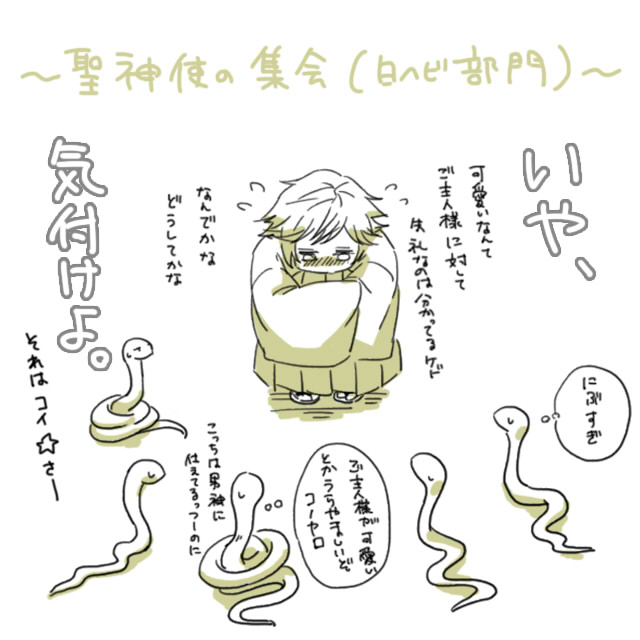 ～聖神使の集会(白ヘビ部門)～
いや、
気付けよ。
可愛いなんて
ご主人様に対して
失礼なのは分かってるケド
なんでかな
どうしてかな
にぶすぎ
それはコイ☆さー
ご主人様が可愛い
とかうらやましいぞ
コノヤロ
こっちは男神に
仕えてるっつーのに